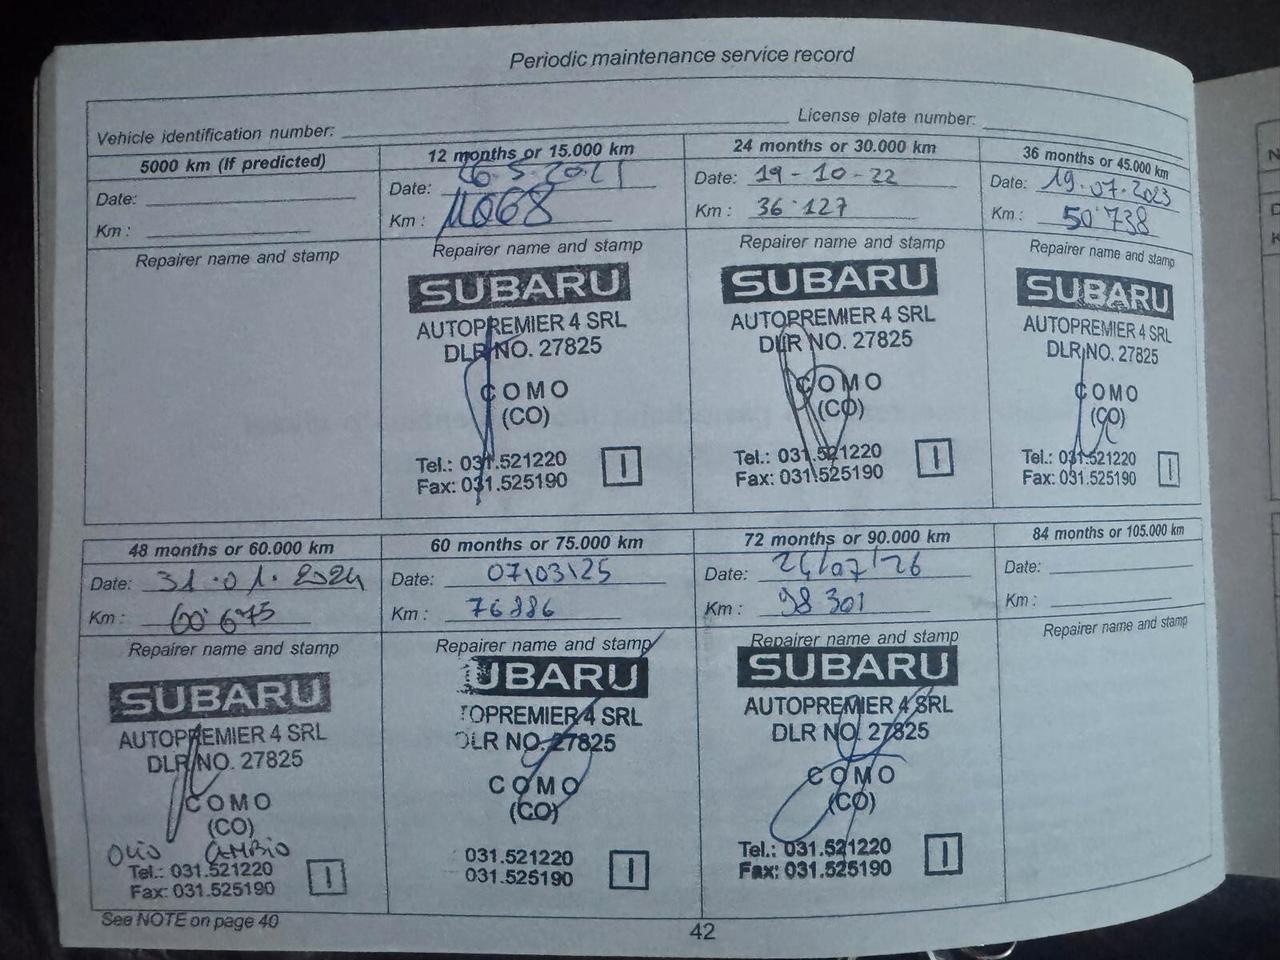 Periodic maintenance service record
Vehicle identification number:
License plate number:
5000 km (If predicted)
Date:
Km :
Repairer name and stamp
12 months or 15.000 km
Date: 26.5.2021
Km : 11068
Repairer name and stamp
SUBARU
AUTOPREMIER 4 SRL
DLR NO. 27825
COMO
(CO)
Tel.: 031.521220
Fax: 031.525190
I
24 months or 30.000 km
Date: 19-10-22
Km : 36'127
Repairer name and stamp
SUBARU
AUTOPREMIER 4 SRL
DLR NO. 27825
COMO
(CO)
Tel.: 031.521220
Fax: 031.525190
I
36 months or 45.000 km
Date: 19.07.2023
Km : 50'738
Repairer name and stamp
SUBARU
AUTOPREMIER 4 SRL
DLR NO. 27825
COMO
(CO)
Tel.: 031.521220
Fax: 031.525190
I
48 months or 60.000 km
Date: 31.01.2024
Km : 60'675
Repairer name and stamp
SUBARU
AUTOPREMIER 4 SRL
DLR NO. 27825
COMO
(CO)
OLIO CAMBIO
Tel.: 031.521220
Fax: 031.525190
I
60 months or 75.000 km
Date: 07\03\25
Km : 76886
Repairer name and stamp
UBARU
TOPREMIER 4 SRL
DLR NO. 27825
COMO
(CO)
031.521220
031.525190
I
72 months or 90.000 km
Date: 24/07/26
Km : 98301
Repairer name and stamp
SUBARU
AUTOPREMIER 4 SRL
DLR NO. 27825
COMO
(CO)
Tel.: 031.521220
Fax: 031.525190
I
84 months or 105.000 km
Date:
Km :
Repairer name and stamp
See NOTE on page 40
42